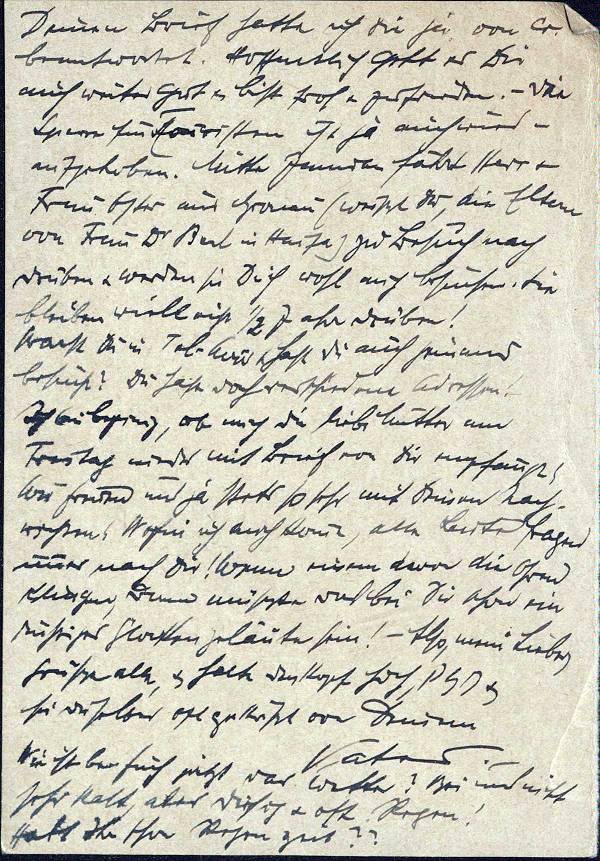 Deinen Brief hatte ich Dir ja von
beantwortet. Hoffentlich geht es Dir
auch weiter gut & bist froh & zufrieden. – Die
Sperre für Touristen ist ja auch wieder
aufgehoben. Mitte Januar fährt Herr &
Frau aus Gronau (weißt Du, die Eltern
von Frau Dr in Haifa) zu Besuch nach
drüben & werden sie Dich wohl auch besuchen. Sie
bleiben vielleicht 1/2 Jahr drüben!
Warst Du in Tel-Aviv & hast Du auch jemand
besucht? Du hast doch verschiedene Adressen!
Ich bin begierig, ob mich die liebe Mutter am
Freitag wieder mit Brief von Dir empfängt!
Wir freuen uns ja stets so sehr mit Deinen Nach-
richten! Wohin ich auch komme, alle Leute fragen
immer nach Dir! Wenn einem davon die Ohren
klingen, dann müßte das bei Dir schon ein
richtiges Glockengeläute sein! – Also, mein Lieber,
grüße alle, & halte den Kopf hoch, &
sei Du selber oft geküßt von Deinem
Vater.
Wie ist bei Euch jetzt das Wetter? Bei uns nicht
sehr kalt, aber diesig & oft Regen!
Habt Ihr schon Regenzeit??